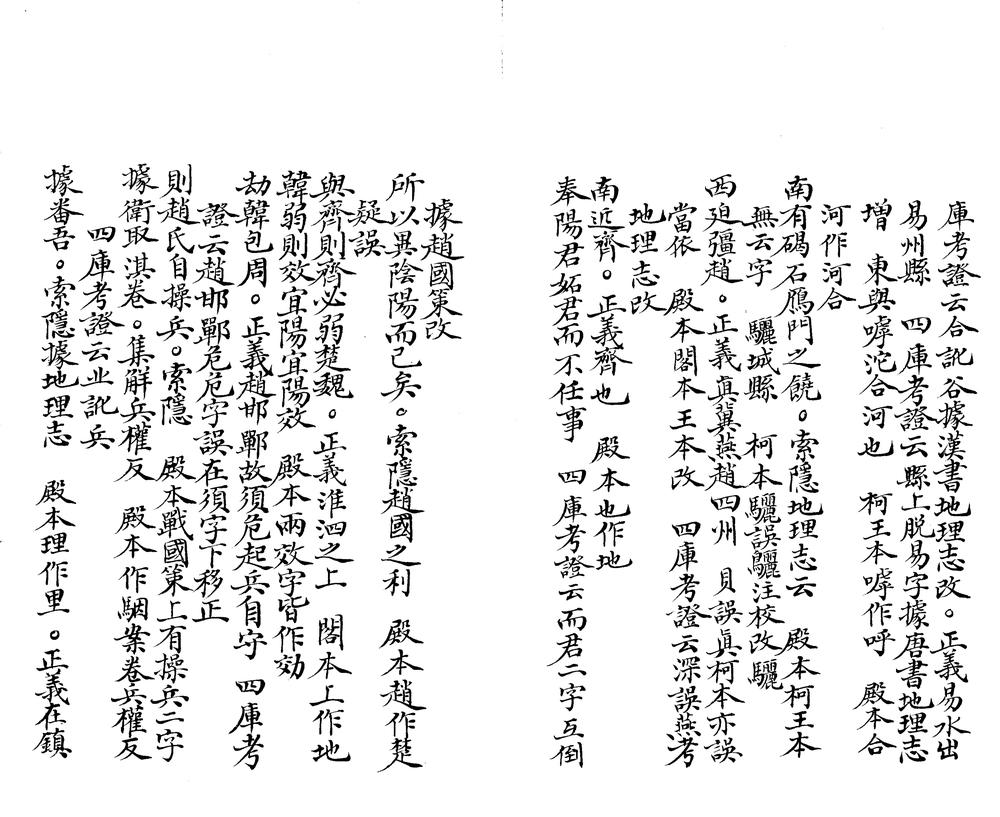 庫考證云合訛谷據漢書地理志改。正義易水出
易州縣　四庫考證云縣上脫易字據唐書地理志
增　東與嘑沱合河也　柯王本嘑作呼　殿本合
河作河合
南有碣石鴈門之饒。索隱地理志云　殿本柯王本
無云字　驪城縣　柯本驪誤驪注校改驪
西迫彊趙。正義真冀燕趙四州　貝誤真柯本亦誤
當依　殿本閣本王本改　四庫考證云深誤燕考
地理志改
南近齊。正義齊也　殿本也作地
奉陽君妬君而不任事　四庫考證云而君二字互倒
據趙國策改
所以異陰陽而已矣。索隱趙國之利　殿本趙作楚
疑誤
與齊則齊必弱楚魏。正義淮泗之上　閣本上作地
韓弱則效宜陽宜陽效　殿本兩效字皆作効
劫韓包周。正義趙邯鄲故須危起兵自守　四庫考
證云趙邯鄲危危字誤在須字下移正
則趙氏自操兵。索隱　殿本戰國策上有操兵二字
據衛取淇卷。集解兵權反　殿本作駰案卷兵權反
四庫考證云丘訛兵
據番吾。索隱據地理志　殿本理作里。正義在鎮